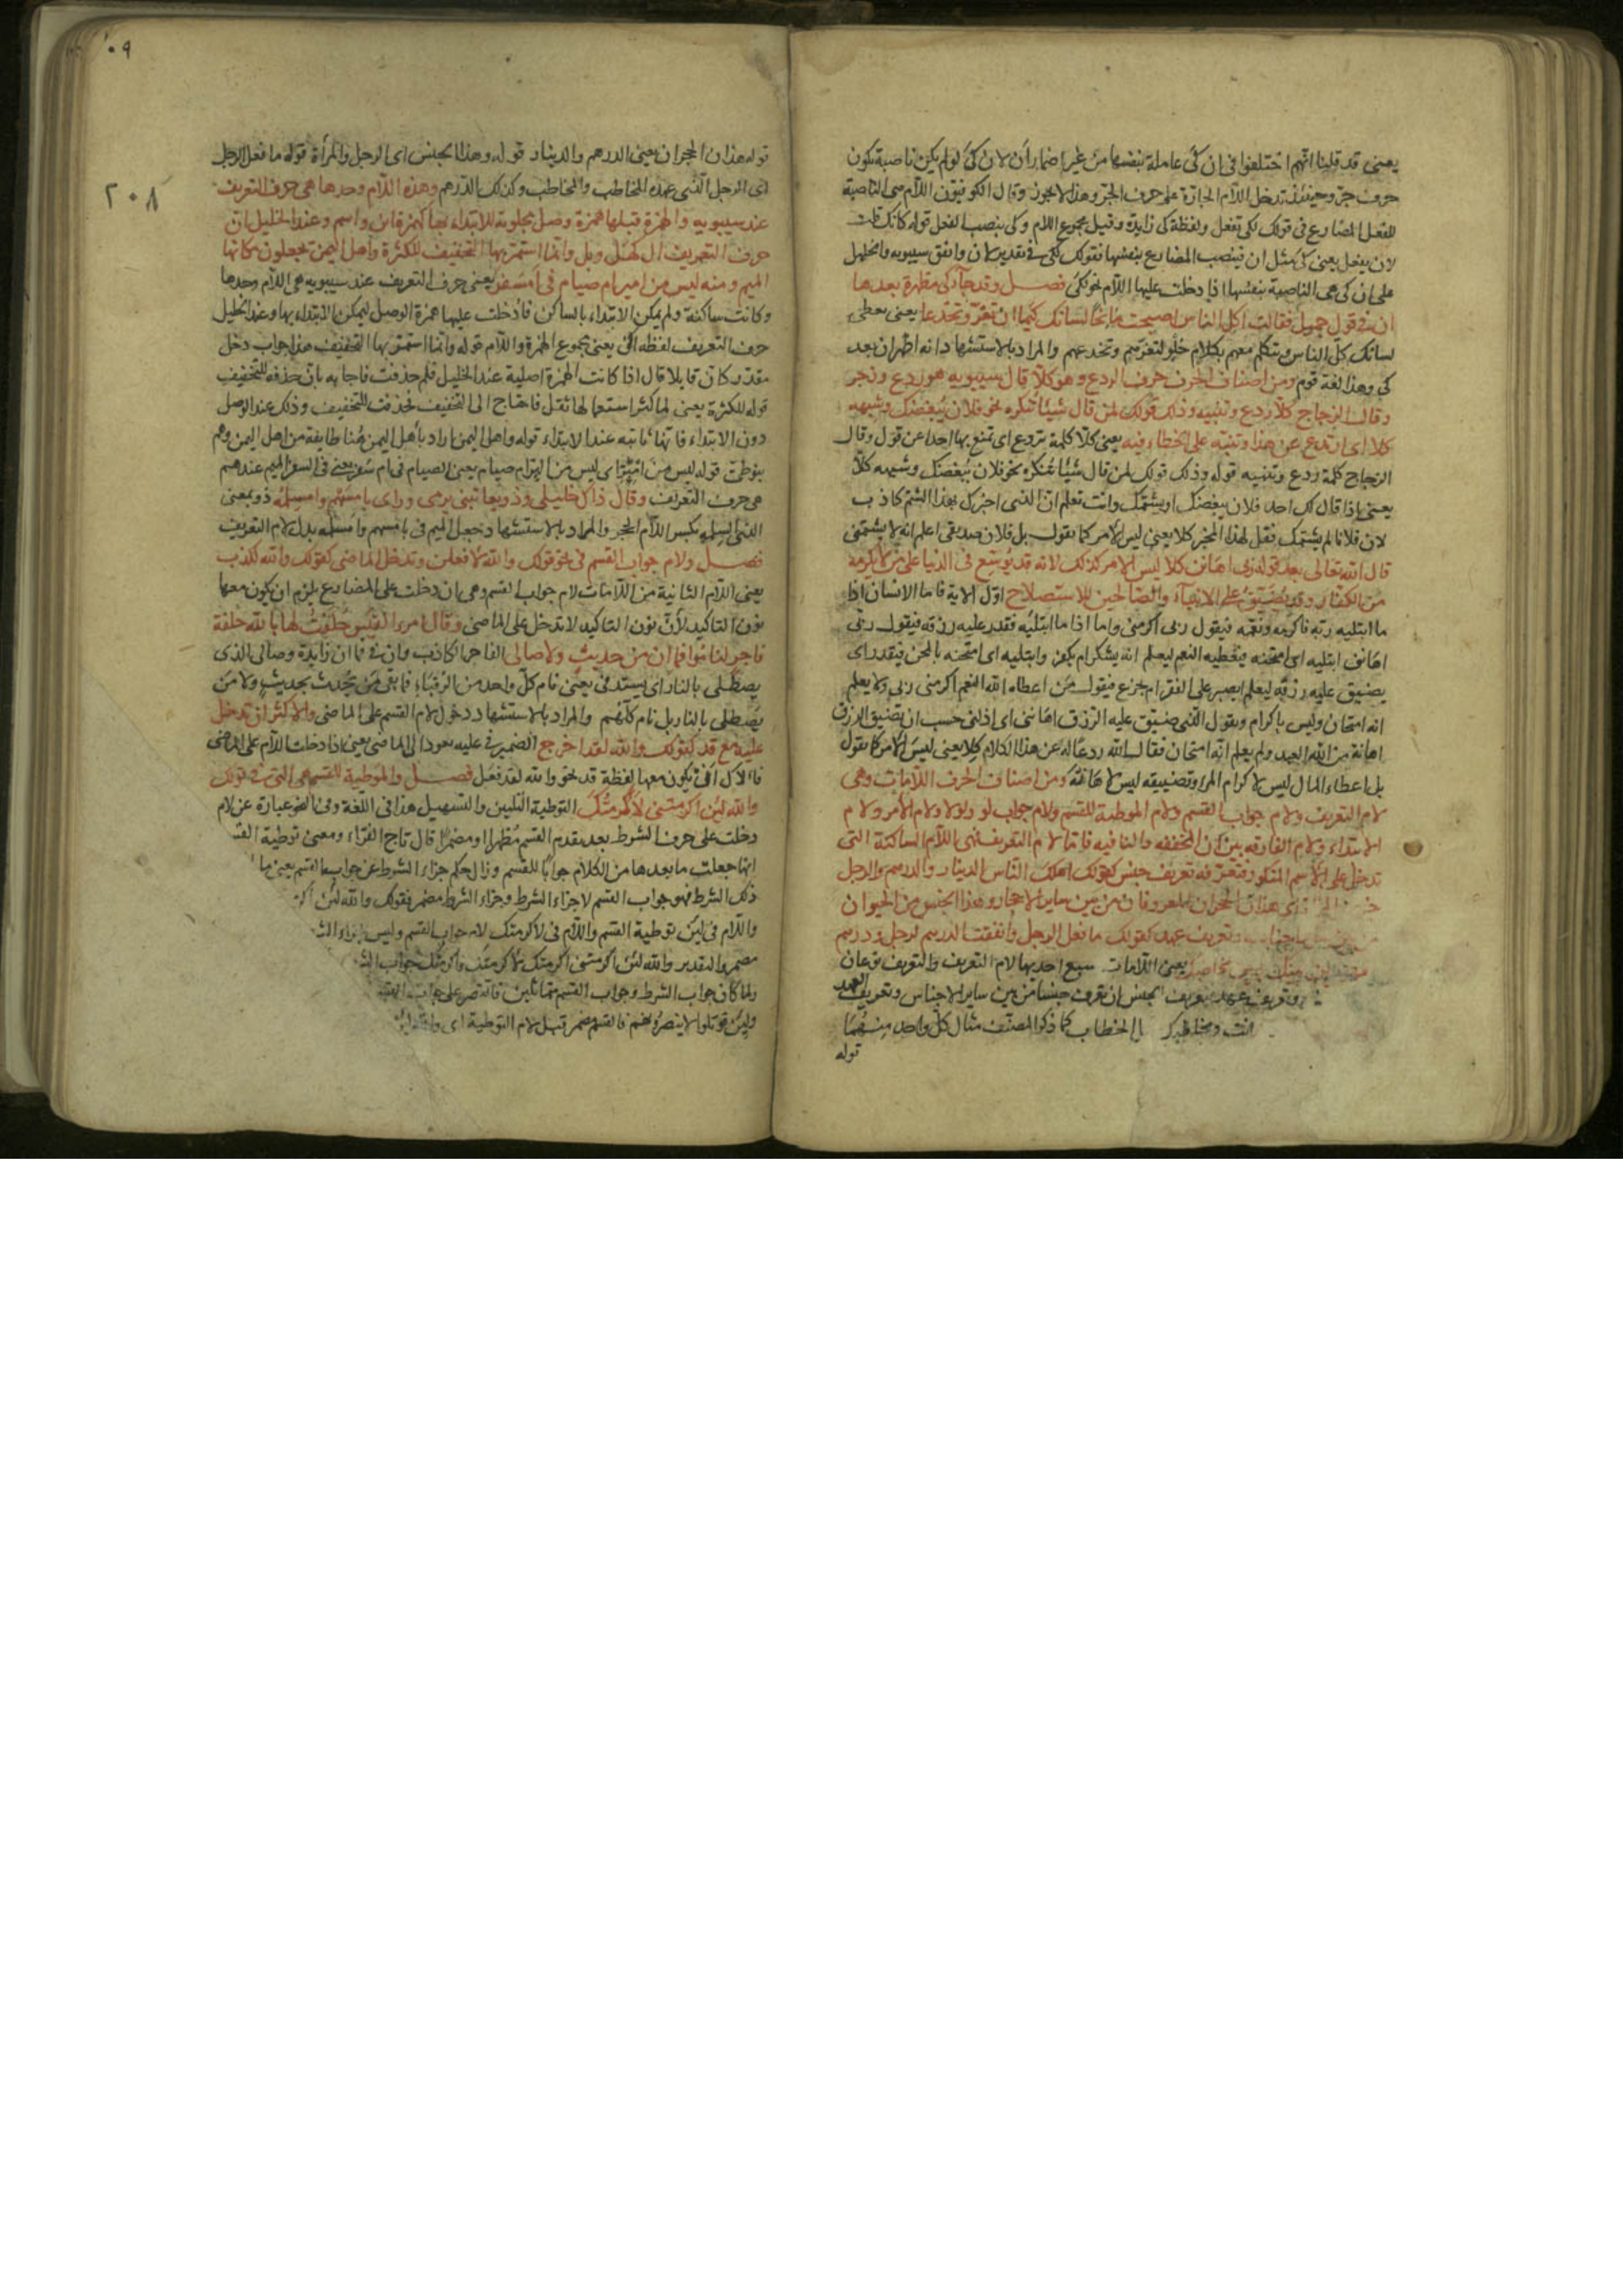 يعنى قد قلنا انهم اختلفوا فى ان كى عاملة بنفسها من غير اضمار ان لان كى لو لم يكن ناصبة تكون
حرف جر وحينئذ تدخل اللام الجارة على حرف الجر وهذا لا يجوز وقال الكوفيون اللام هى الناصبة
للفعل المضارع فى قولك لكى تفعل ولفظة كى زايدة وقيل مجموع اللام وكى ينصب الفعل قوله كانك قلت
لان يفعل يعنى كى مثل ان فينصب المضارع بنفسها فقولك لكى فى تقدير لان وافق سيبويه والخليل
على ان كى هى الناصبة بنفسها اذا دخلت عليها اللام نحو لكى فصل وقد جآء كى مظهرة بعدها
ان فى قول جميل فقالت اكل الناس اصبحت مانحا لسانك كيما ان تغر وتخدعا يعنى معطى
لسانك كل الناس وتتكلم معهم بكلام حلو لتغرهم وتخدعهم والمراد بالاستشهاد انه اظهر ان بعد
كى وهذا لغة قوم ومن اصناف الحرف حرف الردع وهو كلا قال سيبويه هو ردع وزجر
وقال الزجاج كلا ردع وتنبيه وذلك قولك لمن قال شيئا تنكره نحو فلان يبغضك وشبهه
كلا اى ارتدع عن هذا وتنبه على الخطاء فيه يعنى كلا كلمة تردع اى تمنع بها احدا عن قول وقال
الزجاج كلمة ردع وتنبيه قوله وذلك قولك لمن قال شيئا تنكره نحو فلان يبغضك وشبهه كلا
يعنى اذا قال لك احد فلان يبغضك او يشتمك وانت تعلم ان الذى اخبرك بهذا الشتم كاذب
لان فلانا لم يشتمك فقل لهذا المخبر كلا يعنى ليس الامر كما تقول بل فلان صديقى اعلم انه لا يشتمنى
قال الله تعالى بعد قوله ربى اهانن كلا ليس الامر كذلك لانه قد يوسع فى الدنيا على من لا يكرمه
من الكفار وقد يضيق على الانبيآء والصالحين للاستصلاح اول الاية فاما الانسان اذا
ما ابتليه ربه فاكرمه ونعمه فيقول ربى اكرمنى واما اذا ما ابتليه فقدر عليه رزقه فيقول ربى
اهانن ابتليه اى امتحنه ويعطيه النعم ليعلم انه يشكر ام يكفر وابتليه اى امتحنه بالمحن فيقدر اى
يضيق عليه رزقه ليعلم ايصبر على الفقر ام يجزع فيقول من اعطاه الله النعم اكرمنى ربى ولا يعلم
انه امتحان وليس باكرام ويقول الذى ضيق عليه الرزق اهاننى اى اذلنى حسب ان تضييق الرزق
اهانة من الله العبد ولم يعلم انه امتحان فقال الله ردعا له عن هذا الكلام كلا يعنى ليس الامر كما تقول
بل اعطاء المال ليس لاكرام المرا وتضييقه ليس لاهانته ومن اصناف الحرف اللامات وهى
لام التعريف ولام جواب القسم ولام الموطية للقسم ولام جواب لو ولولا ولام الامر ولام
الابتداء ولام الفارقة بين ان المخففة والنافية فاما لام التعريف فهى اللام الساكنة التى
تدخل على الاسم المنكور فتعرفه تعريف جنس كقولك اهلك الناس الدينار والدرهم والرجل
اى هذان الحجران المعروفان من بين ساير الاحجار وهذا الجنس من الحيوان
وتعريف عهد كقولك ما فعل الرجل وانفقت الدرهم لرجل ودرهم
يعنى اللامات سبع احديها لام التعريف والتعريف نوعان
وتعريف عهد تعريف الجنس ان تعرف جنسا من بين ساير الاجناس وتعريف العهد
انت ومخاطبك بالخطاب كما ذكر المصنف مثال كل واحد منهما
قوله
١٠٩
٢٠٨
قوله هذان الحجران يعنى الدرهم والدينار قوله وهذا الجنس اى الرجل والمرأة قوله ما فعل الرجل
اى الرجل الذى عهده المخاطب والمخاطب وكذلك الدرهم وهذه اللام وحدها هى حرف التعريف
عند سيبويه والهمزة قبلها همزة وصل مجلوبة للابتداء بها كهمزة ابن واسم وعند الخليل ان
حرف التعريف ال كهل وبل وانما استمر بها التخفيف للكثرة واهل اليمن يجعلون مكانها
الميم ومنه ليس من امبر امصيام فى امسفر يعنى حرف التعريف عند سيبويه هى اللام وحدها
وكانت ساكنة ولم يمكن الابتداء بالساكن فادخلت عليها همزة الوصل ليمكن الابتداء بها وعند الخليل
حرف التعريف لفظه ال يعنى مجموع الهمزة واللام قوله وانما استمر بها التخفيف هذا جواب دخل
مقدر كان قايلا قال اذا كانت الهمزة اصلية عند الخليل فلم حذفت فاجابه بان حذفه للتخفيف
قوله للكثرة يعنى لما كثر استعمالها ثقل فاحتاج الى التخفيف فحذفت للتخفيف وذلك عند الوصل
دون الابتداء فانها ثابتة عند الابتداء قوله واهل اليمن اراد باهل اليمن هنا طايفة من اهل اليمن وهم
قوله ليس من امبر اى ليس من البر ام صيام يعنى الصيام فى ام سفر يعنى فى السفر الميم عندهم
هى حرف التعريف وقال ذاك خليلى وذو يعاتبنى يرمى وراى بامسهم وامسلمه ذو بمعنى
الذى السلمه بكسر اللام الحجر والمراد بالاستشهاد جعل الميم فى بامسهم وامسلمه بدل لام التعريف
فصل ولام جواب القسم فى نحو قولك والله لافعلن وتدخل الماضى كقولك والله لكذب
يعنى اللام الثانية من اللامات لام جواب القسم وهى ان دخلت على المضارع يلزم ان يكون معها
نون التاكيد لان نون التاكيد لا تدخل على الماضى وقال امرؤ القيس حلفت لها بالله حلفة
فاجر لناموا فما ان من حديث ولا صالى الفاجر الكاذب وان فى فما ان زايدة وصالى الذى
يصطلى بالنار اى يستدفى يعنى نام كل واحد من الرقباء فما بقى من يحدث بحديث ولا من
يصطلى بالنار بل نام كلهم والمراد بالاستشهاد دخول لام القسم على الماضى والاكثر ان تدخل
عليه مع قد كقولك والله لقد خرج الضمير فى عليه يعود الى الماضى يعنى اذا دخلت اللام على الماضى
فالاكثر ان يكون معها لفظة قد نحو والله لقد فعل فصل والموطية للقسم هى التى فى قولك
والله لئن اكرمتنى لاكرمنك التوطية التليين والتسهيل هذا فى اللغة وفى النحو عبارة عن لام
دخلت على حرف الشرط بعد تقدم القسم مظهرا او مضمرا قال تاج القراء ومعنى توطية
انها جعلت ما بعدها من الكلام جوابا للقسم وزال حكم جزاء الشرط عن جواب القسم يعنى ما
ذلك الشرط فهو جواب القسم لا جزاء الشرط وجزاء الشرط مضمر فقولك والله لئن
واللام فى لئن توطية القسم واللام فى لاكرمتك لام جواب القسم وليس
مضمر والتقدير والله لئن اكرمتنى اكرمتك لاكرمتك واكرمتك جواب
ولما كان جواب الشرط وجواب القسم متماثلين فاقتصر على جواب
ولئن قوتلوا لا ينصرونهم فالقسم مضمر قبل لام التوطية اى